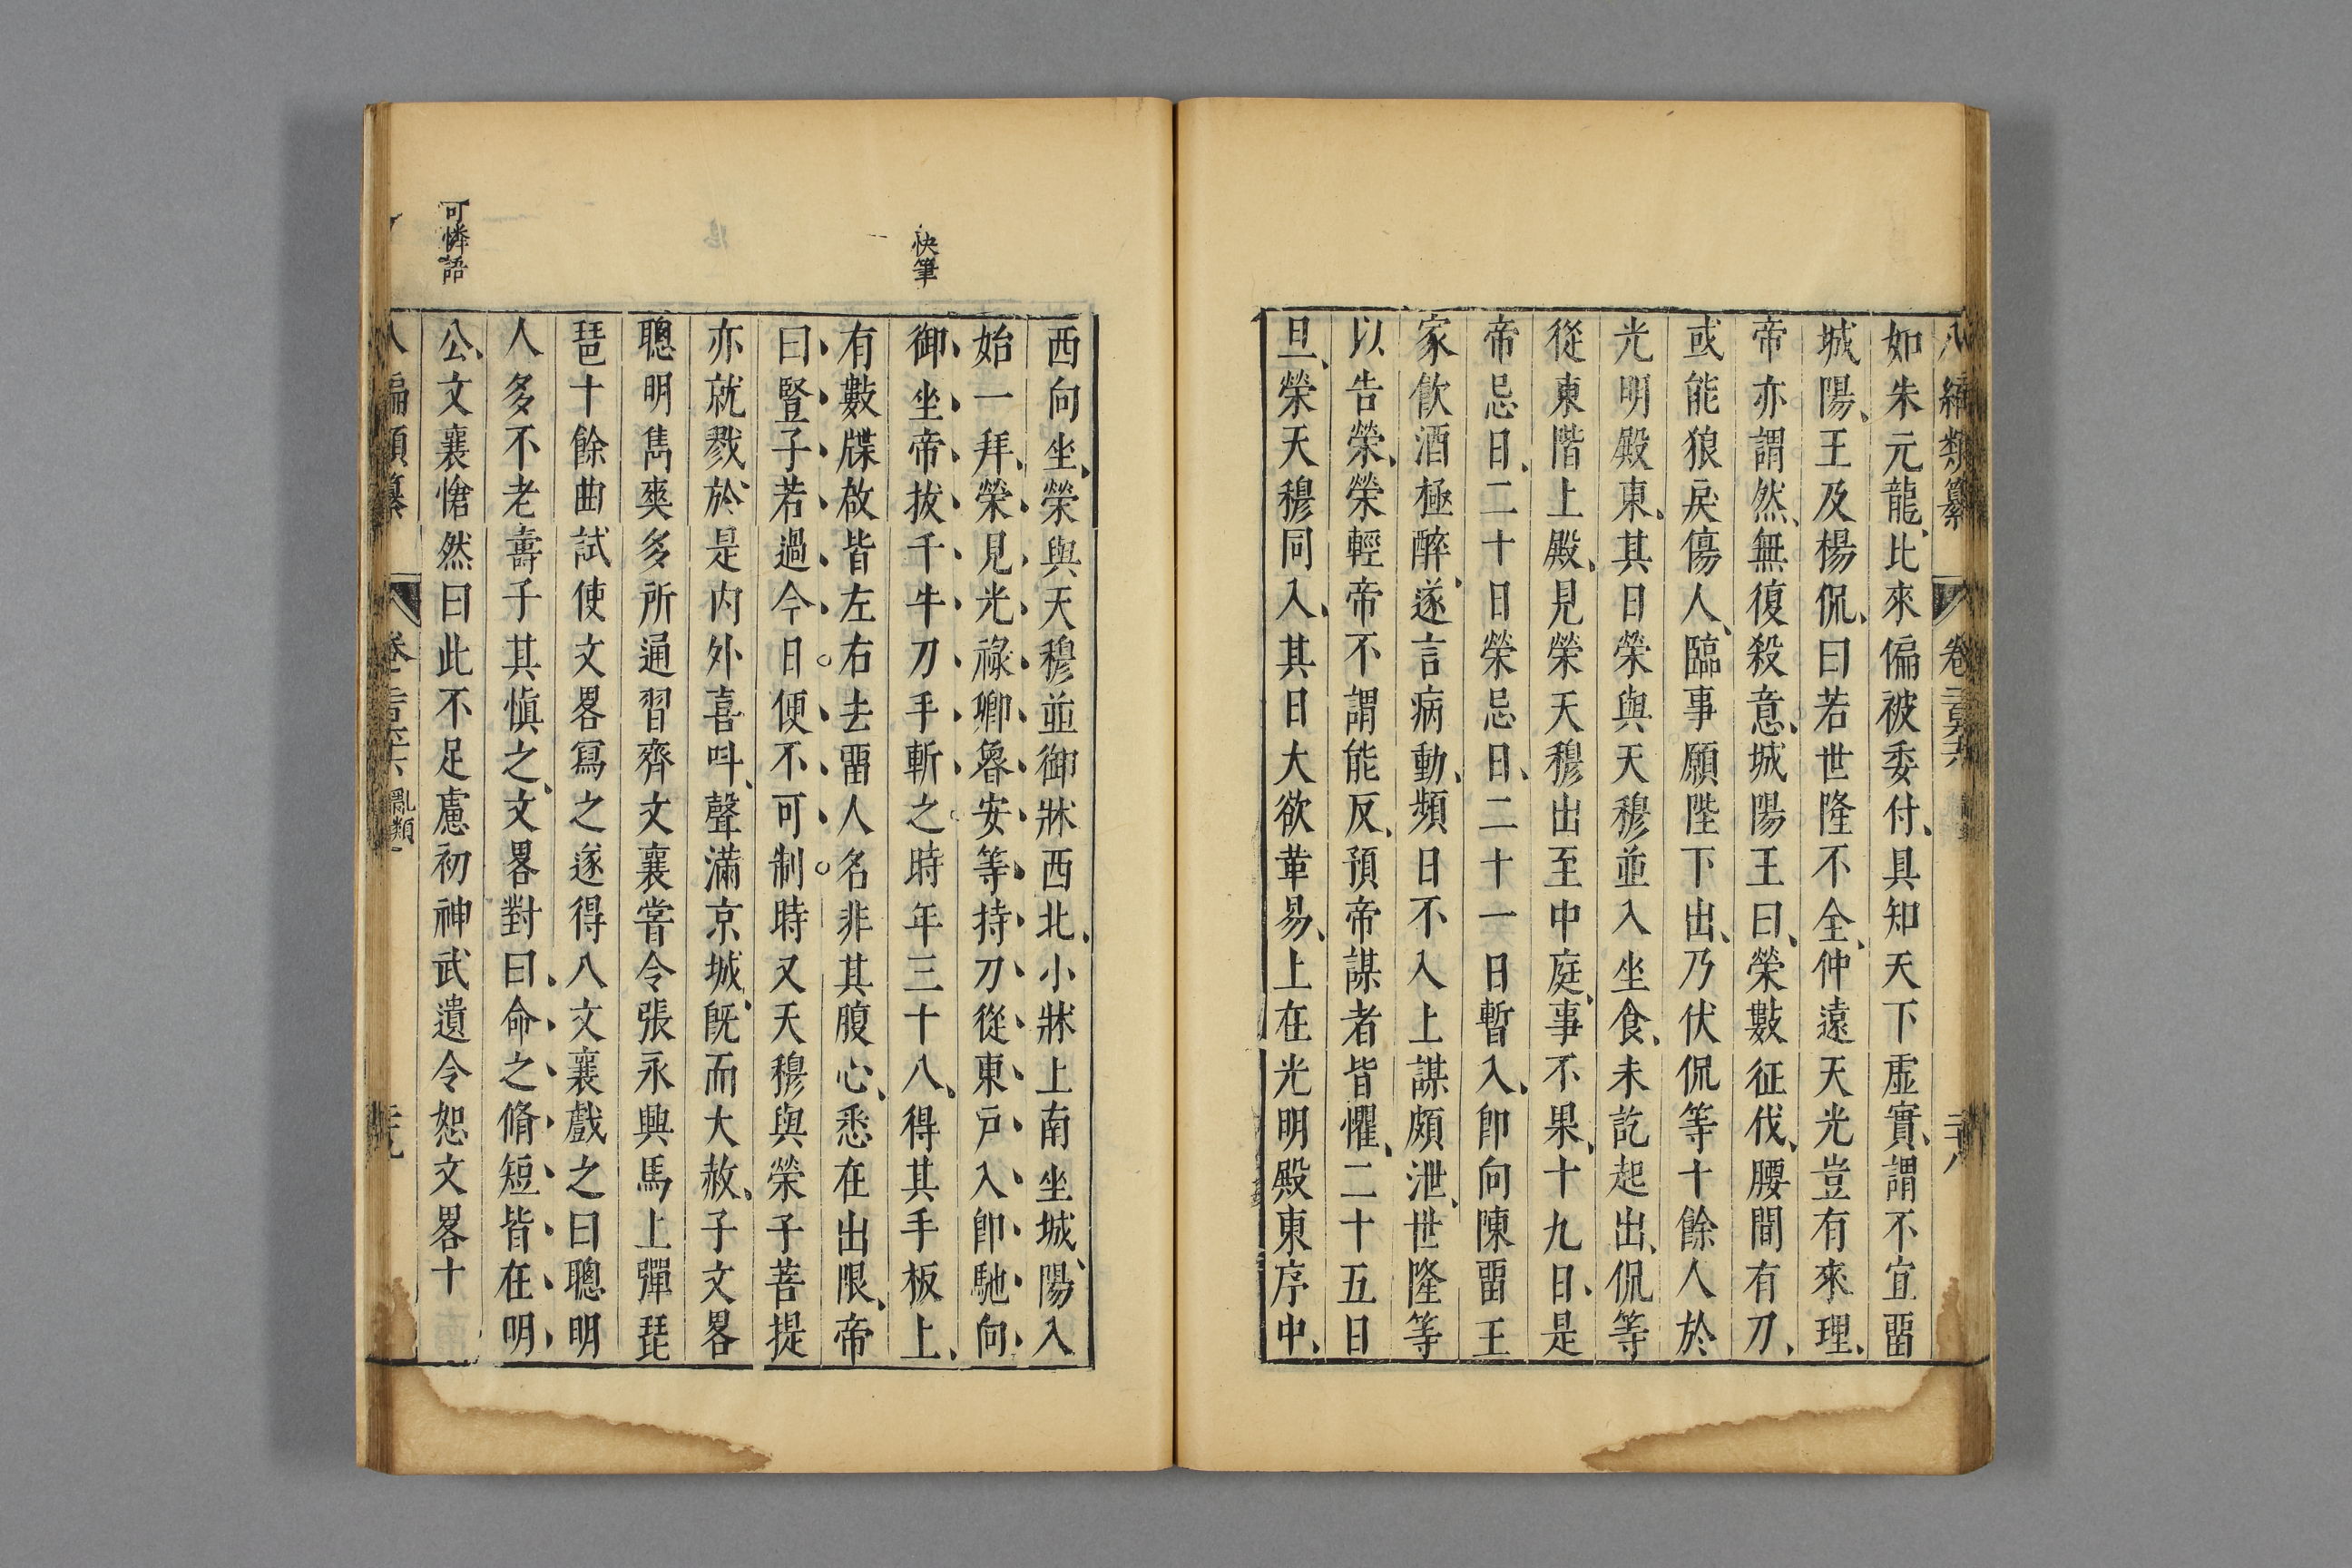 八編類纂 卷二百六 二十八
如朱元龍、比來偏被委付、具知天下虛實、謂不宜畱
城陽、王及楊侃、曰若世隆不全、仲遠天光豈有來理、
帝亦謂然、無復殺意、城陽王曰、榮數征伐、腰間有刀、
或能狼戾傷人、臨事願陛下出、乃伏侃等十餘人於
光明殿東、其日榮與天穆並入坐食、未訖起出、侃等
從東階上殿、見榮天穆出至中庭、事不果、十九日、是
帝忌日、二十日榮忌日、二十一日暫入、卽向陳畱王
家飲酒極醉、遂言病動、頻日不入上謀頗泄、世隆等
以告榮、榮輕帝不謂能反、預帝謀者皆懼、二十五日
旦、榮天穆同入、其日大欲革易、上在光明殿東序中、
西向坐、榮與天穆並御牀西北、小牀上南坐城、陽入
始一拜、榮見光祿卿魯安等持刀從東戶入卽馳向
御坐帝拔千牛刀手斬之時年三十八、得其手板上、
有數牒啟皆左右去畱人名非其腹心、悉在出限、帝
曰豎子若過今日便不可制時又天穆與榮子菩提
亦就戮於是內外喜叫、聲滿京城、旣而大赦、子文畧
聰明雋爽多所通習齊文襄嘗令張永興馬上彈琵
琶十餘曲試使文畧寫之遂得八文襄戲之曰聰明
人多不老壽子其愼之、文畧對曰命之脩短皆在明
公、文襄愴然曰此不足慮初神武遺令恕文畧十
八編類纂 卷二百六 亂類一 二十九
快筆
可憐語